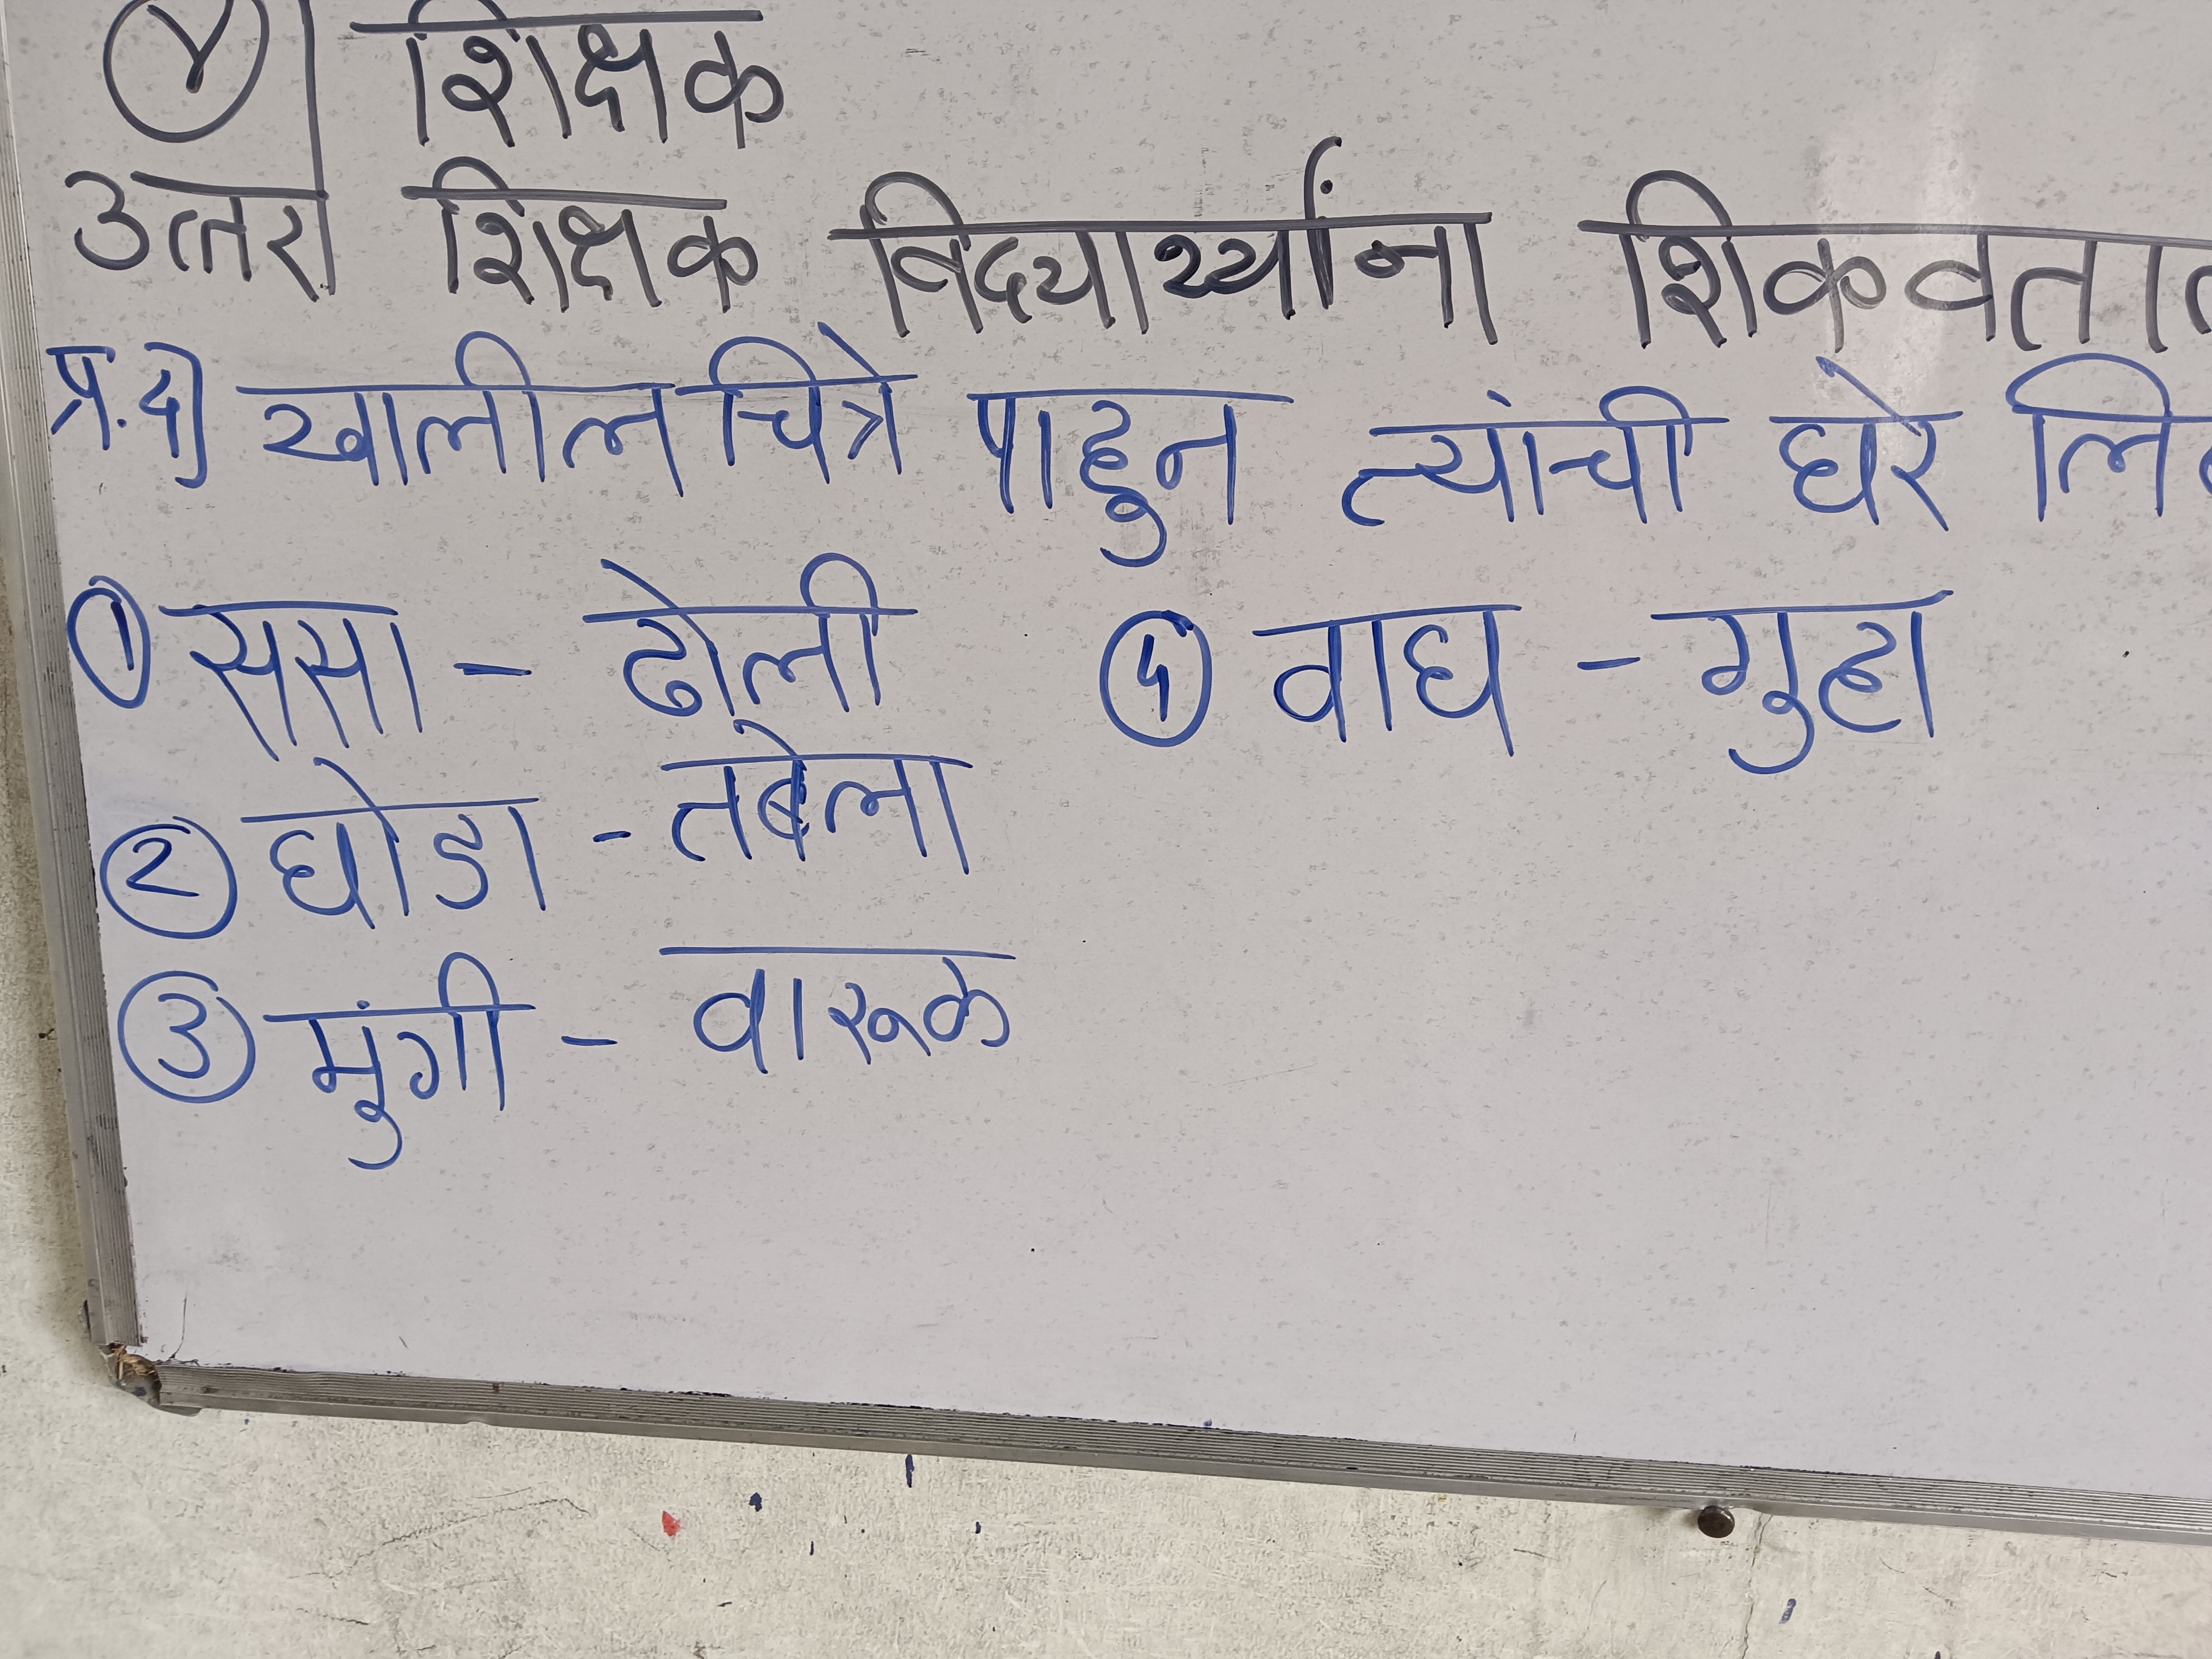 ४ शिक्षक
उत्तर शिक्षक विद्यार्थ्यांना शिकवतात
प्र.५) खालील चित्रे पाहून त्यांची घरे
① ससा - ढोली
② घोडा - तबेला
③ मुंगी - वारूळ
④ वाघ - गुहा